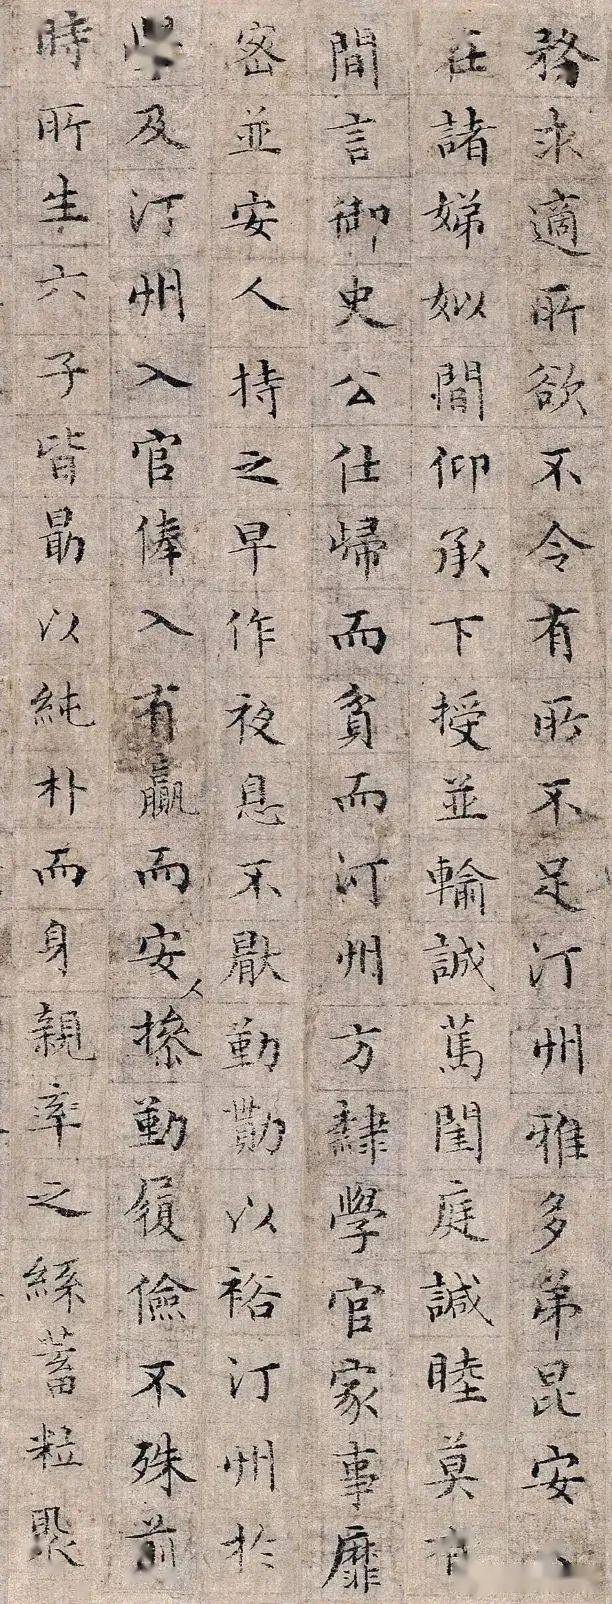 務求適所欲不令有所不足汀州雅多弟昆安
在諸娣姒間仰承下授並輸誠篤閨庭諴睦莫有
間言御史公仕歸而貧而汀州方隸學官家事靡
密並安人持之早作夜息不厭勤勩以裕汀州於
學及汀州入官俸入有贏而安人操勤履儉不殊前
時所生六子皆勗以純朴而身親率之絲蓄粒聚